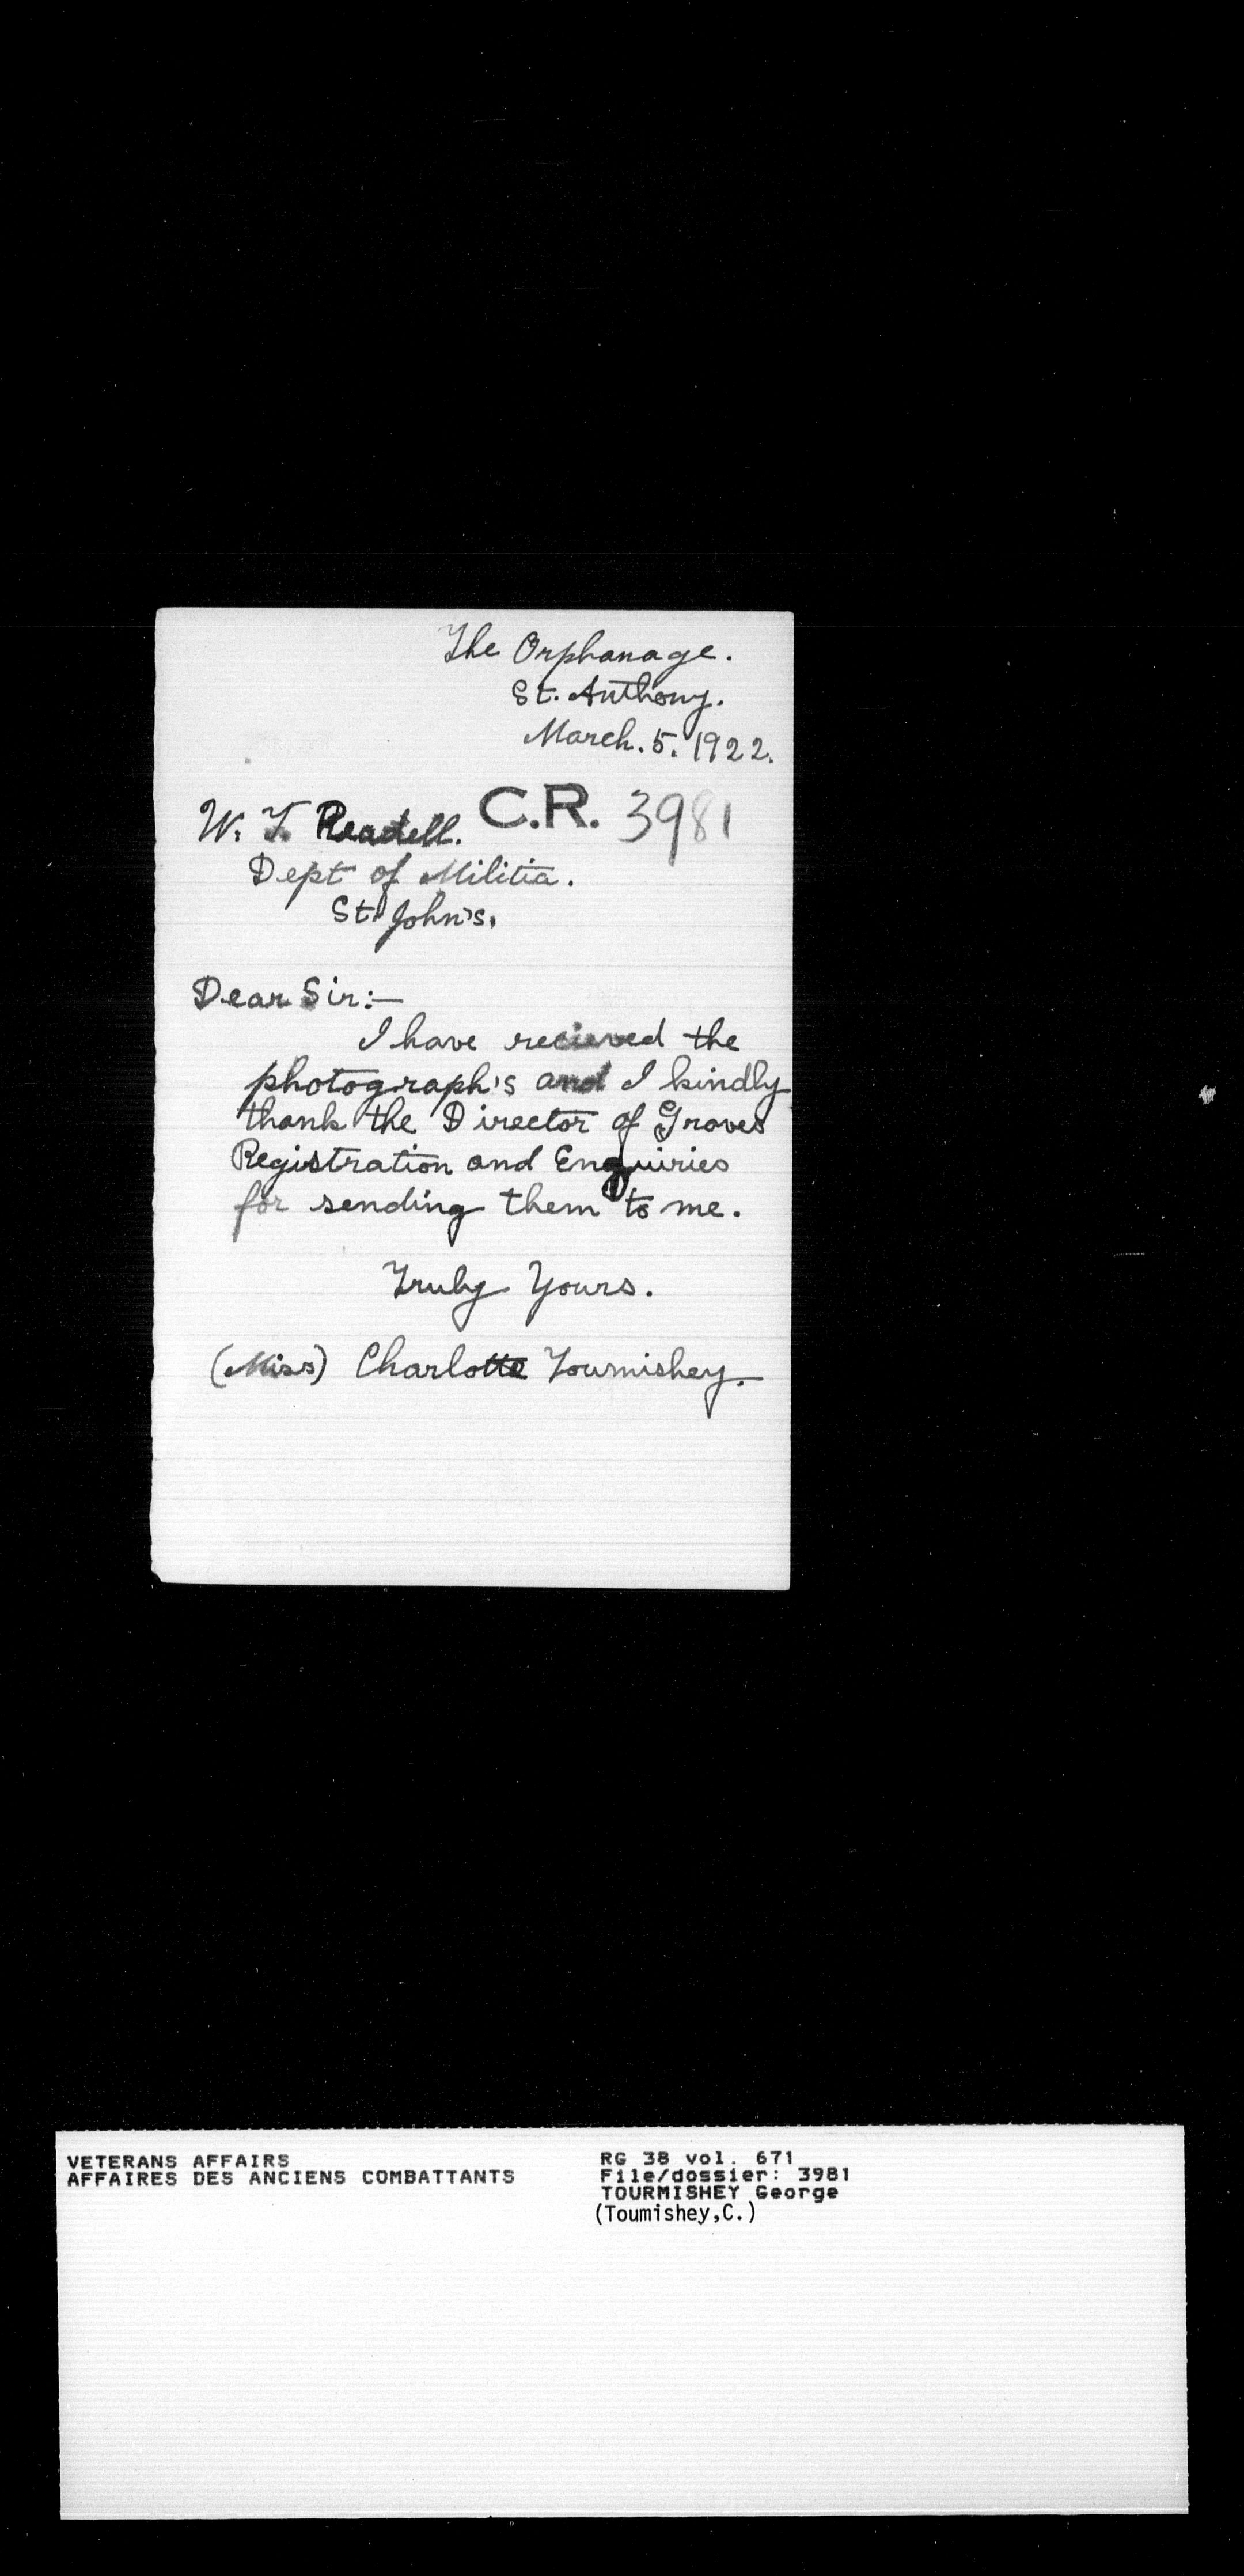 The Orphanage.
St. Anthony.
March. 5. 1922.
C.R. 3981
W. F. Readell.
Dept of Militia.
St. John's.
Dear Sir:—
I have recieved the
photograph's and I kindly
thank the Director of Graves
Registration and Enquiries
for sending them to me.
Truly Yours.
(Miss) Charlotte Tourmishey.
VETERANS AFFAIRS
AFFAIRES DES ANCIENS COMBATTANTS
RG 38 vol. 671
File/dossier: 3981
TOURMISHEY George
(Toumishey,C.)